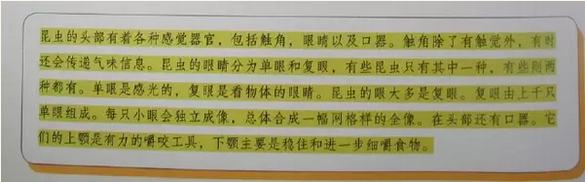 昆虫的头部有着各种感觉器官，包括触角，眼睛以及口器。触角除了有触觉外，有时
还会传递气味信息。昆虫的眼睛分为单眼和复眼，有些昆虫只有其中一种，有些则两
种都有。单眼是感光的，复眼是看物体的眼睛。昆虫的眼大多是复眼。复眼由上千只
单眼组成。每只小眼会独立成像，总体合成一幅网格样的全像。在头部还有口器。它
们的上颚是有力的嚼咬工具，下颚主要是稳住和进一步细嚼食物。